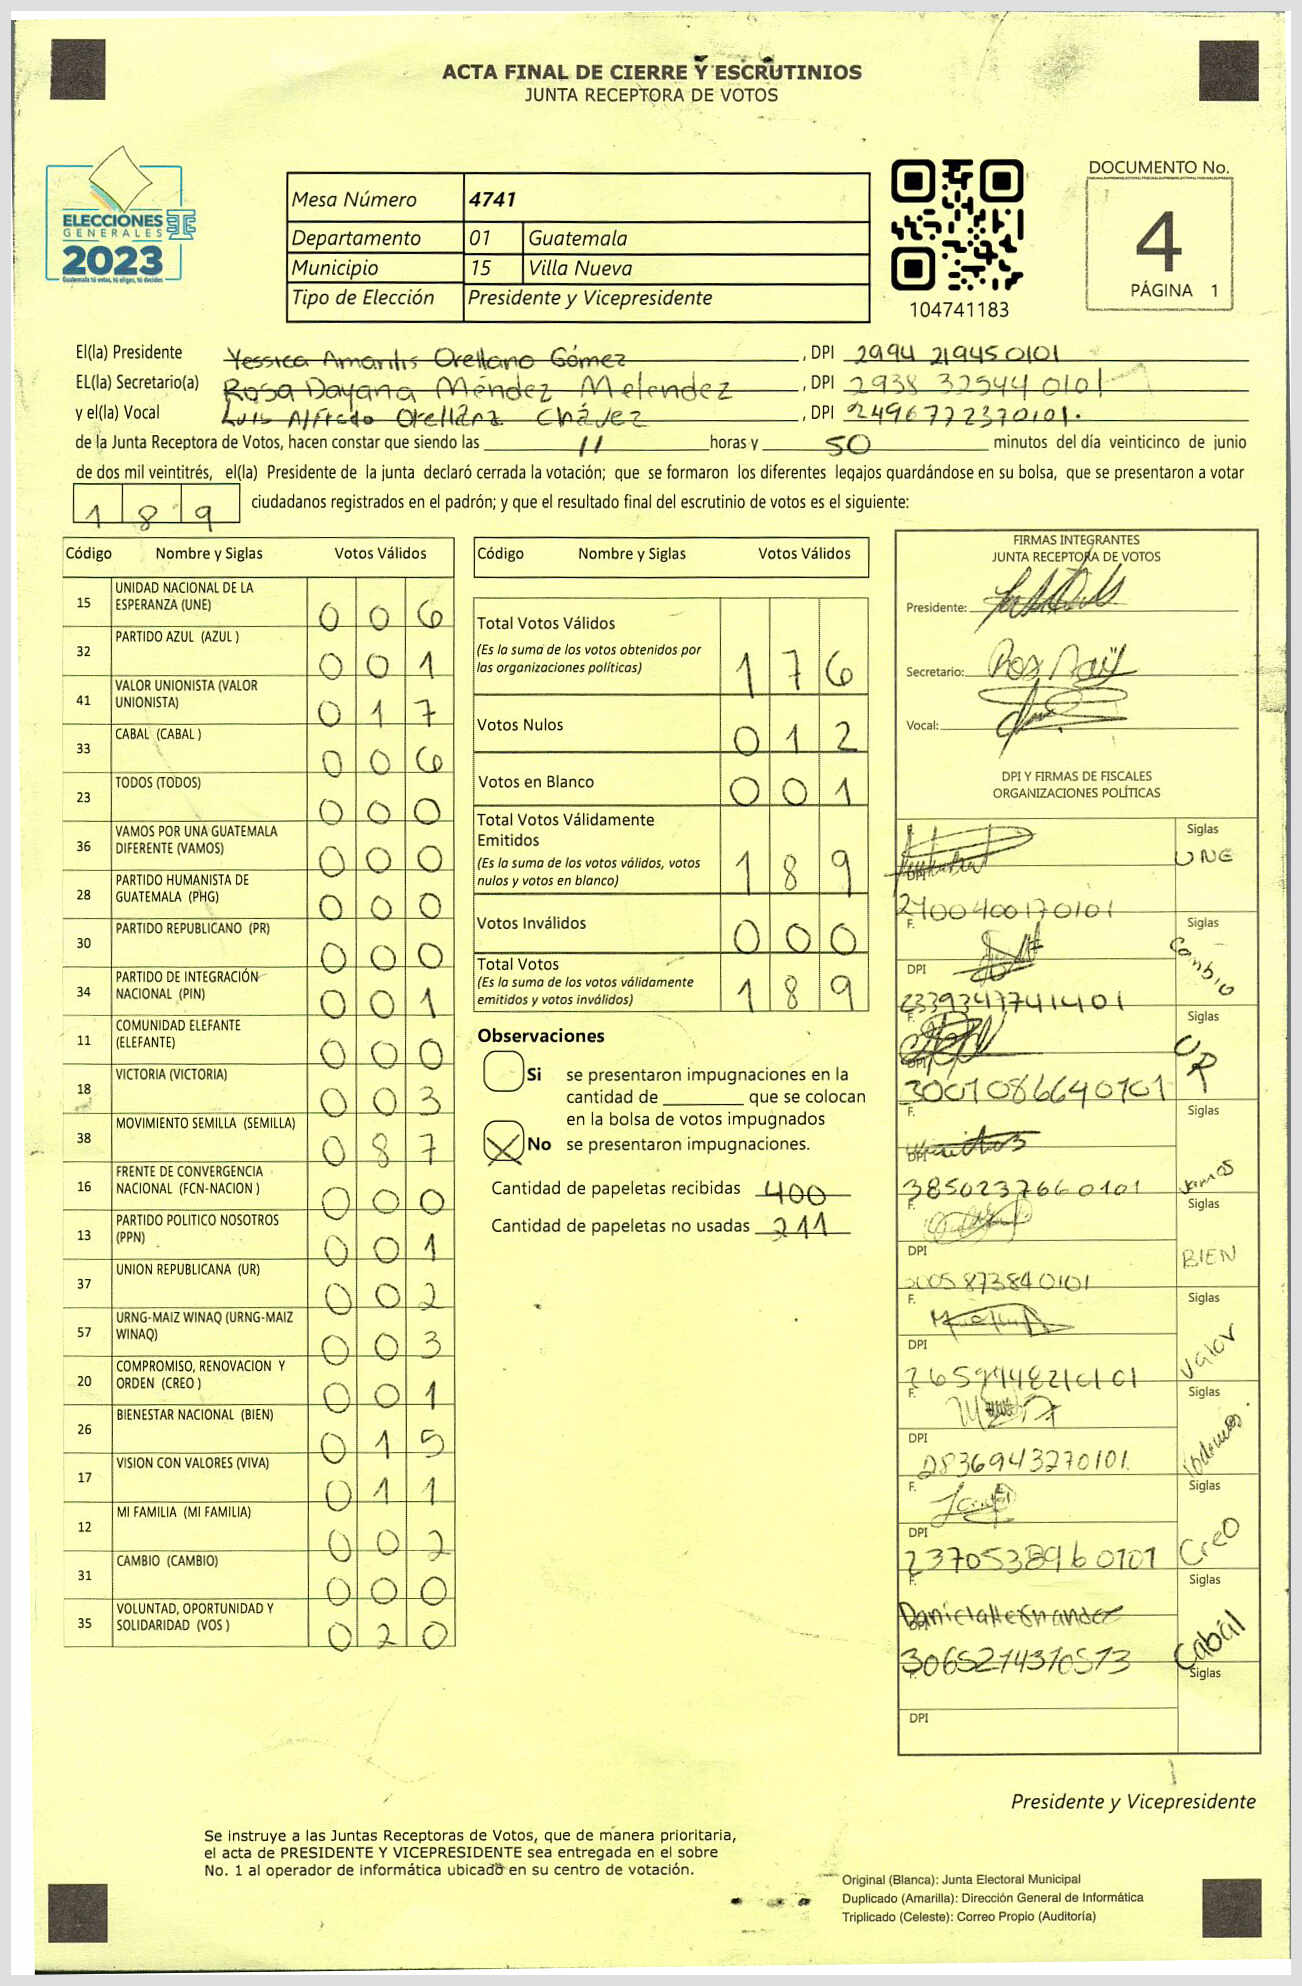 ACTA FINAL DE CIERRE Y ESCRUTINIOS
JUNTA RECEPTORA DE VOTOS
ELECCIONES
GENERALES
2023
Guatemala tú votas, tú eliges, tú decides
Mesa Número 4741
Departamento 01 Guatemala
Municipio 15 Villa Nueva
Tipo de Elección Presidente y Vicepresidente
104741183
DOCUMENTO No.
4
PÁGINA 1
El(la) Presidente Yessica Amarilis Orellano Gómez, DPI 2994 219450101
EL(la) Secretario(a) Rosa Dayana Méndez Melendez, DPI 2938 32544 0101
y el(la) Vocal Luis Alfredo Orellana Chávez, DPI 2496772370101.
de la Junta Receptora de Votos, hacen constar que siendo las 11 horas y 50 minutos del día veinticinco de junio
de dos mil veintitrés, el(la) Presidente de la junta declaró cerrada la votación; que se formaron los diferentes legajos guardándose en su bolsa, que se presentaron a votar
189 ciudadanos registrados en el padrón; y que el resultado final del escrutinio de votos es el siguiente:
Código Nombre y Siglas Votos Válidos
15 UNIDAD NACIONAL DE LA ESPERANZA (UNE) 006
32 PARTIDO AZUL (AZUL ) 001
41 VALOR UNIONISTA (VALOR UNIONISTA) 017
33 CABAL (CABAL ) 006
23 TODOS (TODOS) 000
36 VAMOS POR UNA GUATEMALA DIFERENTE (VAMOS) 000
28 PARTIDO HUMANISTA DE GUATEMALA (PHG) 000
30 PARTIDO REPUBLICANO (PR) 000
34 PARTIDO DE INTEGRACIÓN NACIONAL (PIN) 001
11 COMUNIDAD ELEFANTE (ELEFANTE) 000
18 VICTORIA (VICTORIA) 003
38 MOVIMIENTO SEMILLA (SEMILLA) 087
16 FRENTE DE CONVERGENCIA NACIONAL (FCN-NACION ) 000
13 PARTIDO POLITICO NOSOTROS (PPN) 001
37 UNION REPUBLICANA (UR) 002
57 URNG-MAIZ WINAQ (URNG-MAIZ WINAQ) 003
20 COMPROMISO, RENOVACION Y ORDEN (CREO ) 001
26 BIENESTAR NACIONAL (BIEN) 015
17 VISION CON VALORES (VIVA) 011
12 MI FAMILIA (MI FAMILIA) 002
31 CAMBIO (CAMBIO) 000
35 VOLUNTAD, OPORTUNIDAD Y SOLIDARIDAD (VOS ) 020
Código Nombre y Siglas Votos Válidos
Total Votos Válidos 176
(Es la suma de los votos obtenidos por
las organizaciones políticas)
Votos Nulos 012
Votos en Blanco 001
Total Votos Válidamente
Emitidos 189
(Es la suma de los votos válidos, votos
nulos y votos en blanco)
Votos Inválidos 000
Total Votos 189
(Es la suma de los votos válidamente
emitidos y votos inválidos)
Observaciones
Si se presentaron impugnaciones en la
cantidad de que se colocan
en la bolsa de votos impugnados
No se presentaron impugnaciones.
Cantidad de papeletas recibidas 400
Cantidad de papeletas no usadas 211
FIRMAS INTEGRANTES
JUNTA RECEPTORA DE VOTOS
Presidente:
Secretario:
Vocal:
DPI Y FIRMAS DE FISCALES
ORGANIZACIONES POLÍTICAS
F. Siglas
DPI UNE
2400400170101
F. Siglas
DPI Cambio
2339341741401
F. Siglas
DPI UR
3001086640101
F. Siglas
DPI Vamos
3850237660101
F. Siglas
DPI BIEN
F. Siglas
DPI Valor
F. Siglas
DPI
2836943270101
F. Siglas
DPI Creo
2370538960101
F. Siglas
Daniela Hernandez
DPI Cabal
3065214310513
F. Siglas
DPI
Presidente y Vicepresidente
Se instruye a las Juntas Receptoras de Votos, que de manera prioritaria,
el acta de PRESIDENTE Y VICEPRESIDENTE sea entregada en el sobre
No. 1 al operador de informática ubicado en su centro de votación.
Original (Blanca): Junta Electoral Municipal
Duplicado (Amarilla): Dirección General de Informática
Triplicado (Celeste): Correo Propio (Auditoría)